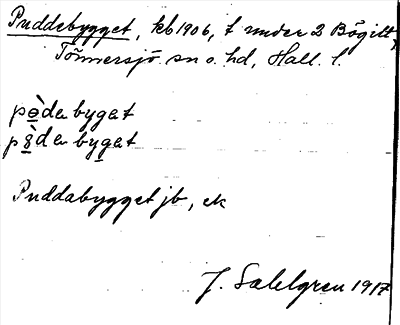 Puddebygget, kb 1906, t under 2 Bögilt,
Tönnersjö sn o. hd, Hall. l.
pòdabygat
pòdabygat
Puddabygget jb, ek
J. Sahlgren 1917